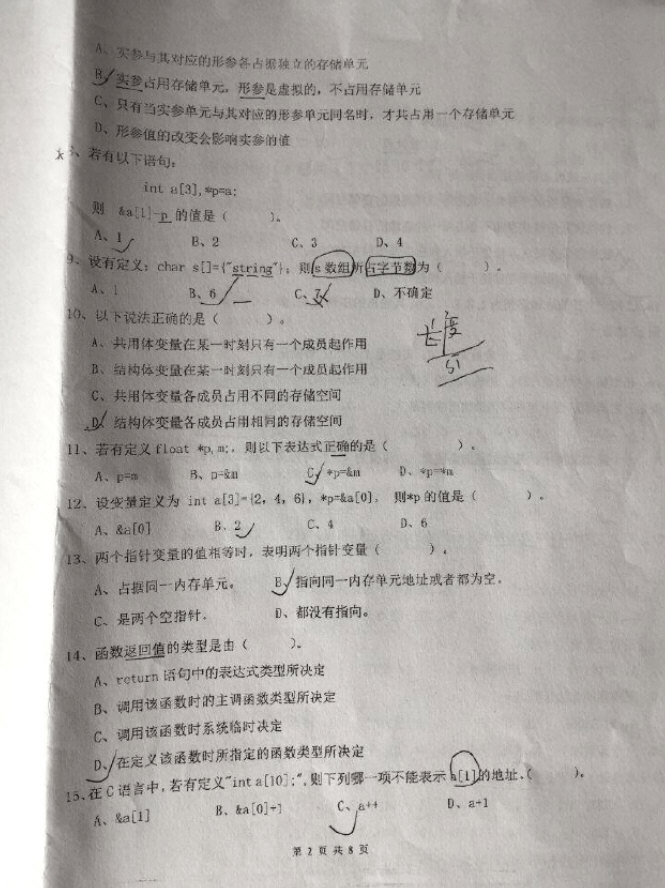 A、实参与其对应的形参各占据独立的存储单元
B、实参占用存储单元，形参是虚拟的，不占用存储单元
C、只有当实参单元与其对应的形参单元同名时，才共占用一个存储单元
D、形参值的改变会影响实参的值
、若有以下语句：
int a[3],*p=a;
则 &a[1]-p 的值是（ ）。
A、1 B、2 C、3 D、4
9、设有定义：char s[]={"string"}；则s数组所占字节数为（ ）。
A、1 B、6 C、7 D、不确定
10、以下说法正确的是（ ）。
长度
A、共用体变量在某一时刻只有一个成员起作用
B、结构体变量在某一时刻只有一个成员起作用
C、共用体变量各成员占用不同的存储空间
D、结构体变量各成员占用相同的存储空间
11、若有定义 float *p,m;，则以下表达式正确的是（ ）。
A、p=m B、p=&m C、*p=&m D、*p=*m
12、设变量定义为 int a[3]={2，4，6}，*p=&a[0]， 则*p的值是（ ）。
A、&a[0] B、2 C、4 D、6
13、两个指针变量的值相等时，表明两个指针变量（ ）。
A、占据同一内存单元。 B、指向同一内存单元地址或者都为空。
C、是两个空指针。 D、都没有指向。
14、函数返回值的类型是由（ ）。
A、return 语句中的表达式类型所决定
B、调用该函数时的主调函数类型所决定
C、调用该函数时系统临时决定
D、在定义该函数时所指定的函数类型所决定
15、在 C 语言中，若有定义"int a[10];",则下列哪一项不能表示 a[1]的地址.（ ）。
A、&a[1] B、&a[0]+1 C、a++ D、a+1
第 2 页 共 8 页